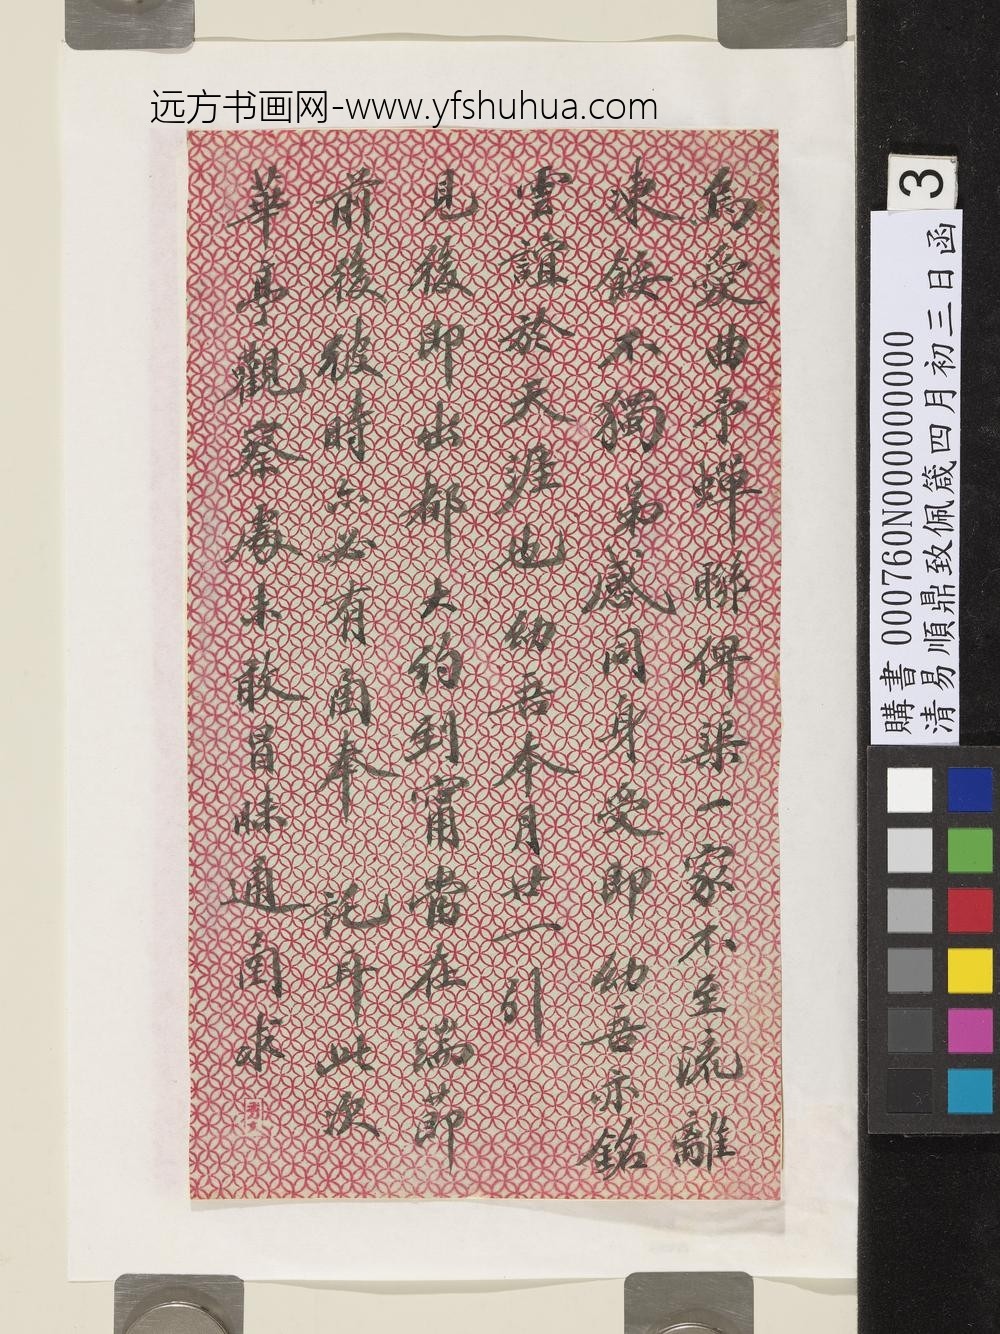 远方书画网-www.yfshuhua.com
烏愛曲予蟬聯俾渠一家不至流離
凍餒不獨弟感同身受即幼吾亦銘
雲誼於天涯也幼吾本月廿一引
見後即出都大約到甯當在端節
前後彼時亦必有函奉託耳此次
華亭觀察處未敢冒昧通函求
3
購書 000760N000000000
清易順鼎致佩箴四月初三日函